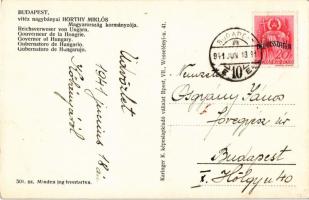 BUDAPEST,
vitéz nagybányai HORTHY MIKLÓS
Magyarország kormányzója.
Reichsverweser von Ungarn.
Gouverneur de la Hongrie.
Governor of Hungary.
Gubernatore de Hungario.
Gubernatoro de Hungarujo.
Üdvözlet
1941 junius 18án
501. sz. Minden jog fenntartva.
Karinger K. képeslapkiadó vállalat Bpest, VII., Wesselényi-u. 41.
BUDAPEST
941 JUN 18
10
János
úr
Budapest
I. Hőlgy u 40